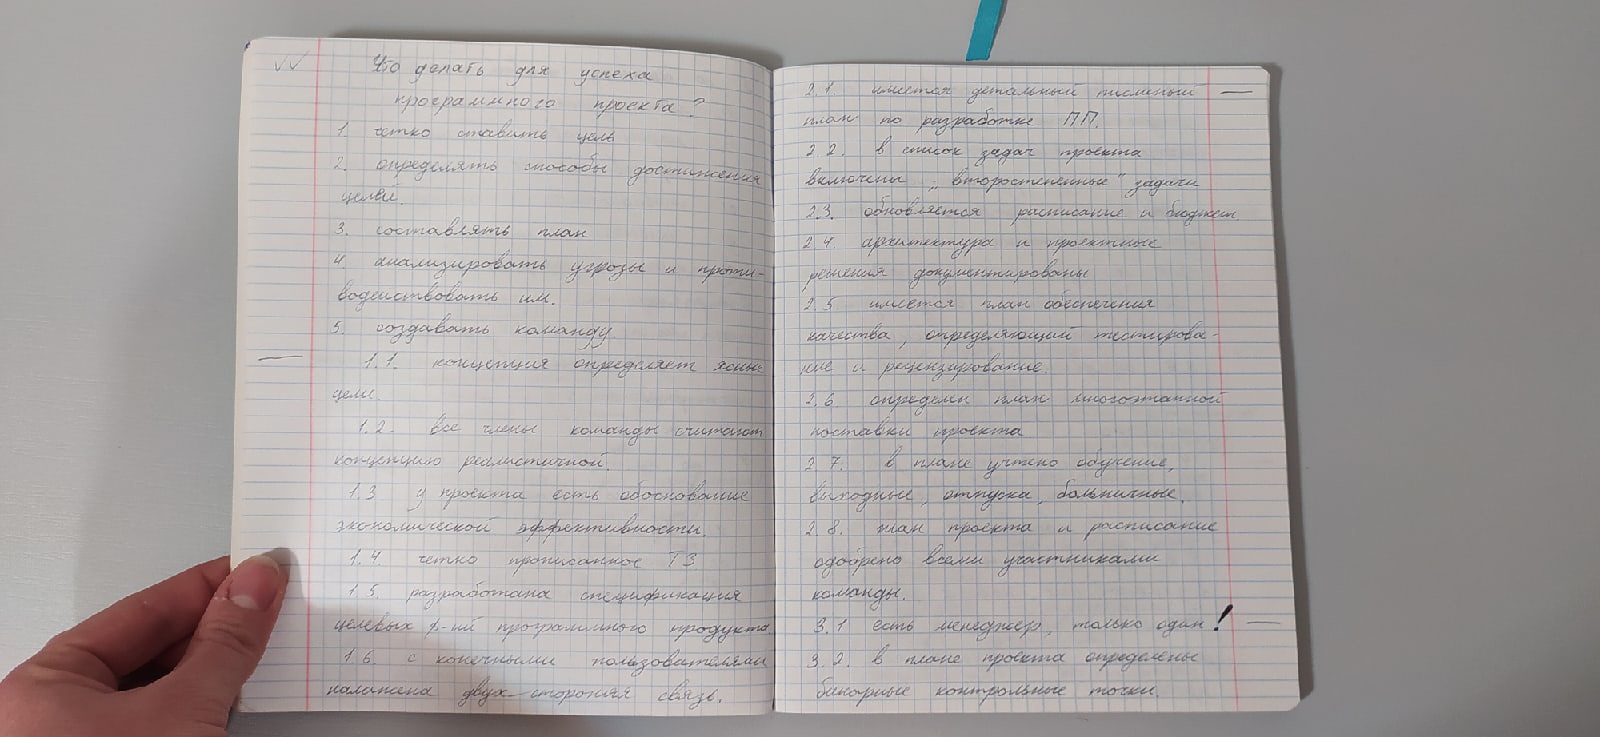 Что делать для успеха
программного проекта?
1. четко ставить цель
2. определять способы достижения
целей.
3. составлять план
4. анализировать угрозы и проти-
водействовать им.
5. создавать команду.
1.1. концепция определяет
цели.
1.2. все члены команды считают
концепцию реалистичной.
1.3 у проекта есть обоснование
экономической эффективности.
1.4. четко прописанное ТЗ
1.5. разработана спецификация
целевых ф-ий программного продукта.
1.6. с конечными пользователями
налажена двух-сторонняя связь.
2.1. имеется детальный письменный
план по разработке ПП.
2.2. в список задач проекта
включены „второстепенные" задачи
2.3. обновляется расписание и бюджет
2.4. архитектура и проектные
решения документированы
2.5 имеется план обеспечения
качества, определяющий тестирова-
ние и рецензирование.
2.6 определен план многоэтапной
поставки проекта
2.7. в плане учтено обучение,
выходные, отпуска, больничные.
2.8. план проекта и расписание
одобрено всеми участниками
команды.
3.1 есть менеджер, только один!
3.2. в плане проекта определены
бинарные контрольные точки.